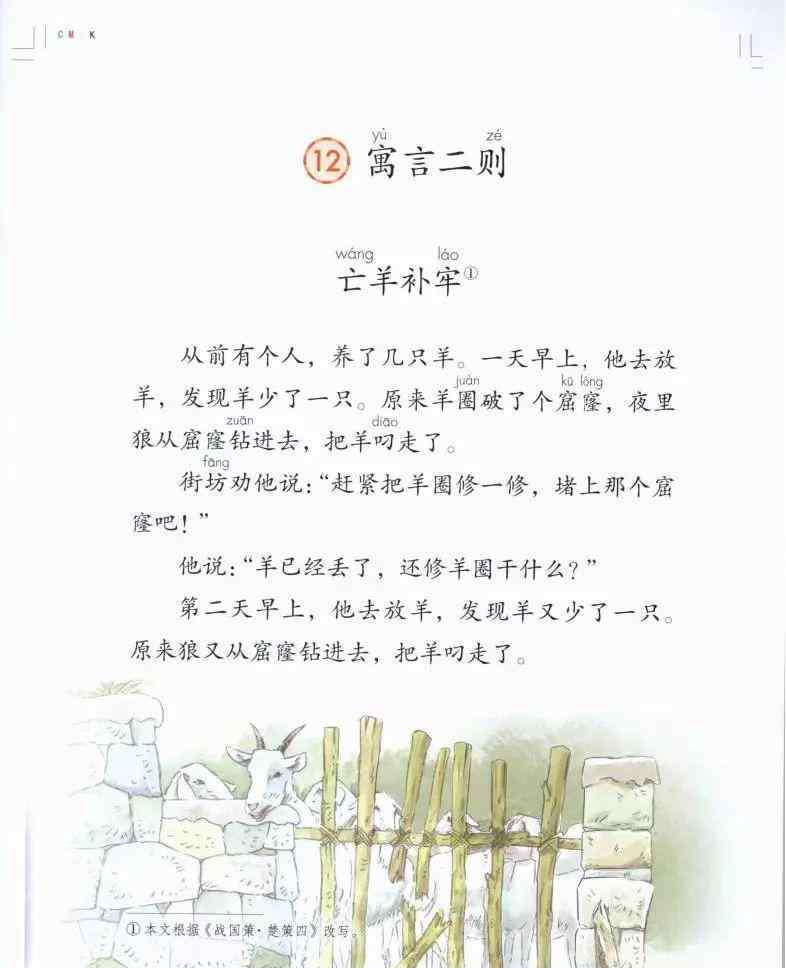 CM K
yù zé
12 寓言二则
wáng láo
亡羊补牢①
从前有个人，养了几只羊。一天早上，他去放
羊，发现羊少了一只。原来羊圈破了个窟窿，夜里
juàn kū lóng
狼从窟窿钻进去，把羊叼走了。
zuān diāo
街坊劝他说：“赶紧把羊圈修一修，堵上那个窟
fāng
窿吧！”
他说：“羊已经丢了，还修羊圈干什么？”
第二天早上，他去放羊，发现羊又少了一只。
原来狼又从窟窿钻进去，把羊叼走了。
①本文根据《战国策·楚策四》改写。